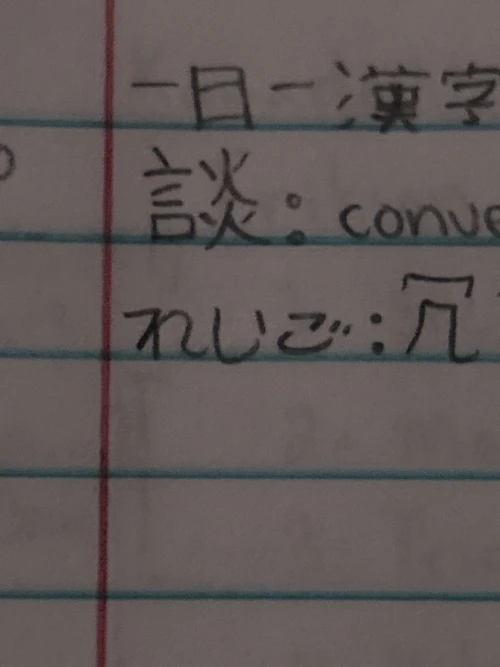 一日一漢字
談：conve
れいご：冗